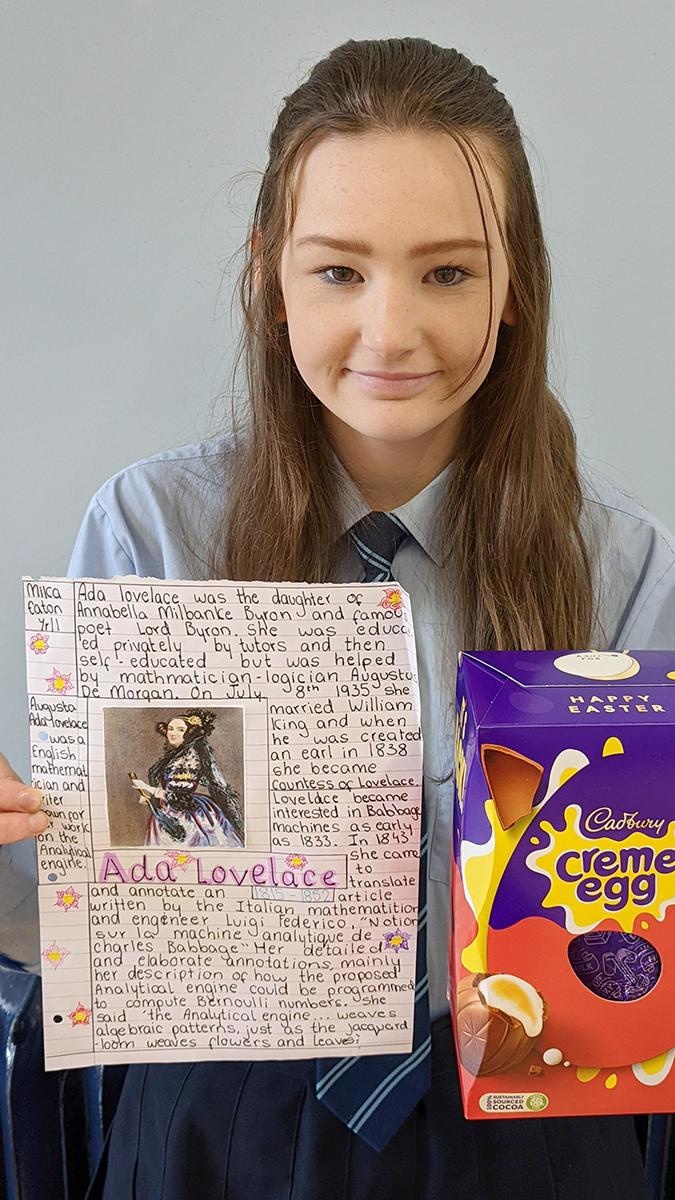 Milca
Eaton
Yr11
Ada lovelace was the daughter of
Annabella Milbanke Byron and famous
poet Lord Byron. She was educat
ed privately by tutors and then
self-educated but was helped
by mathmatician-logician Augustus
De Morgan. On July 8th 1935 she
married William
King and when
he was created
an earl in 1838
she became
countess of Lovelace.
Lovelace became
interested in Babbage
machines as early
as 1833. In 1843
she came
to
translate
Augusta
Ada-lovelace
was a
English
mathemat
ician and
writer
known for
her work
on the
Analytical
engine.
Ada Lovelace
and annotate an 1815 - 1852 article
written by the Italian mathematition
and engineer Luigi Federico, "Notion
sur la machine analytique de
charles Babbage" Her detailed
and elaborate annotations, mainly
her description of how the proposed
Analytical engine could be programmed
to compute Bernoulli numbers. She
said "the Analytical engine... weaves
algebraic patterns, just as the jacquard
-loom weaves flowers and leaves"
A GIFT
FOR
HAPPY
EASTER
Cadbury
creme
egg
100%
SUSTAINABLY
SOURCED
COCOA